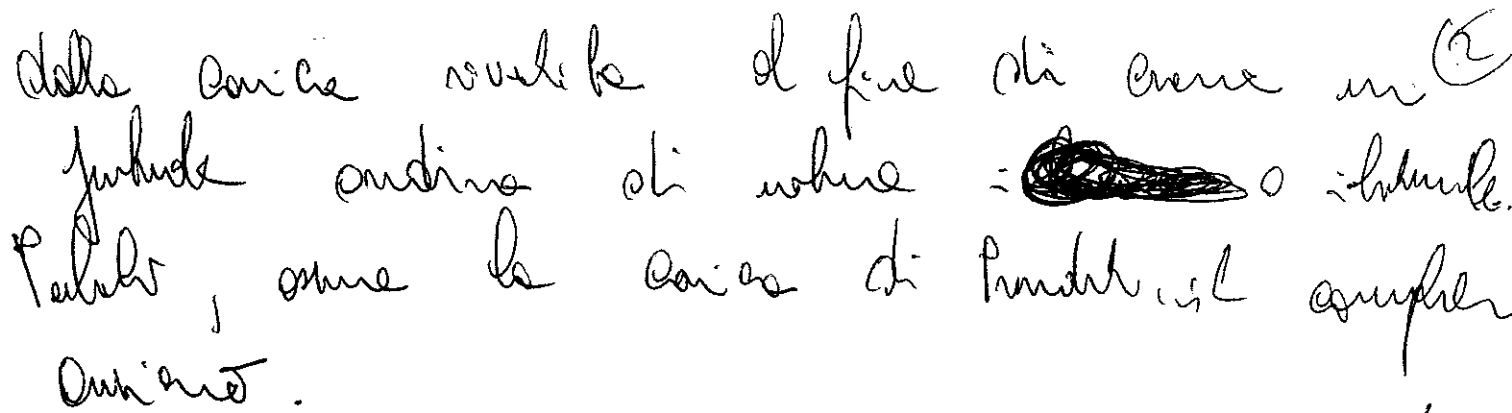 dalla carica rivestita al fine di creare un (2)
ordine di natura o istituzionale.
Pertanto, assume la carica di President il consigliere
anziano.